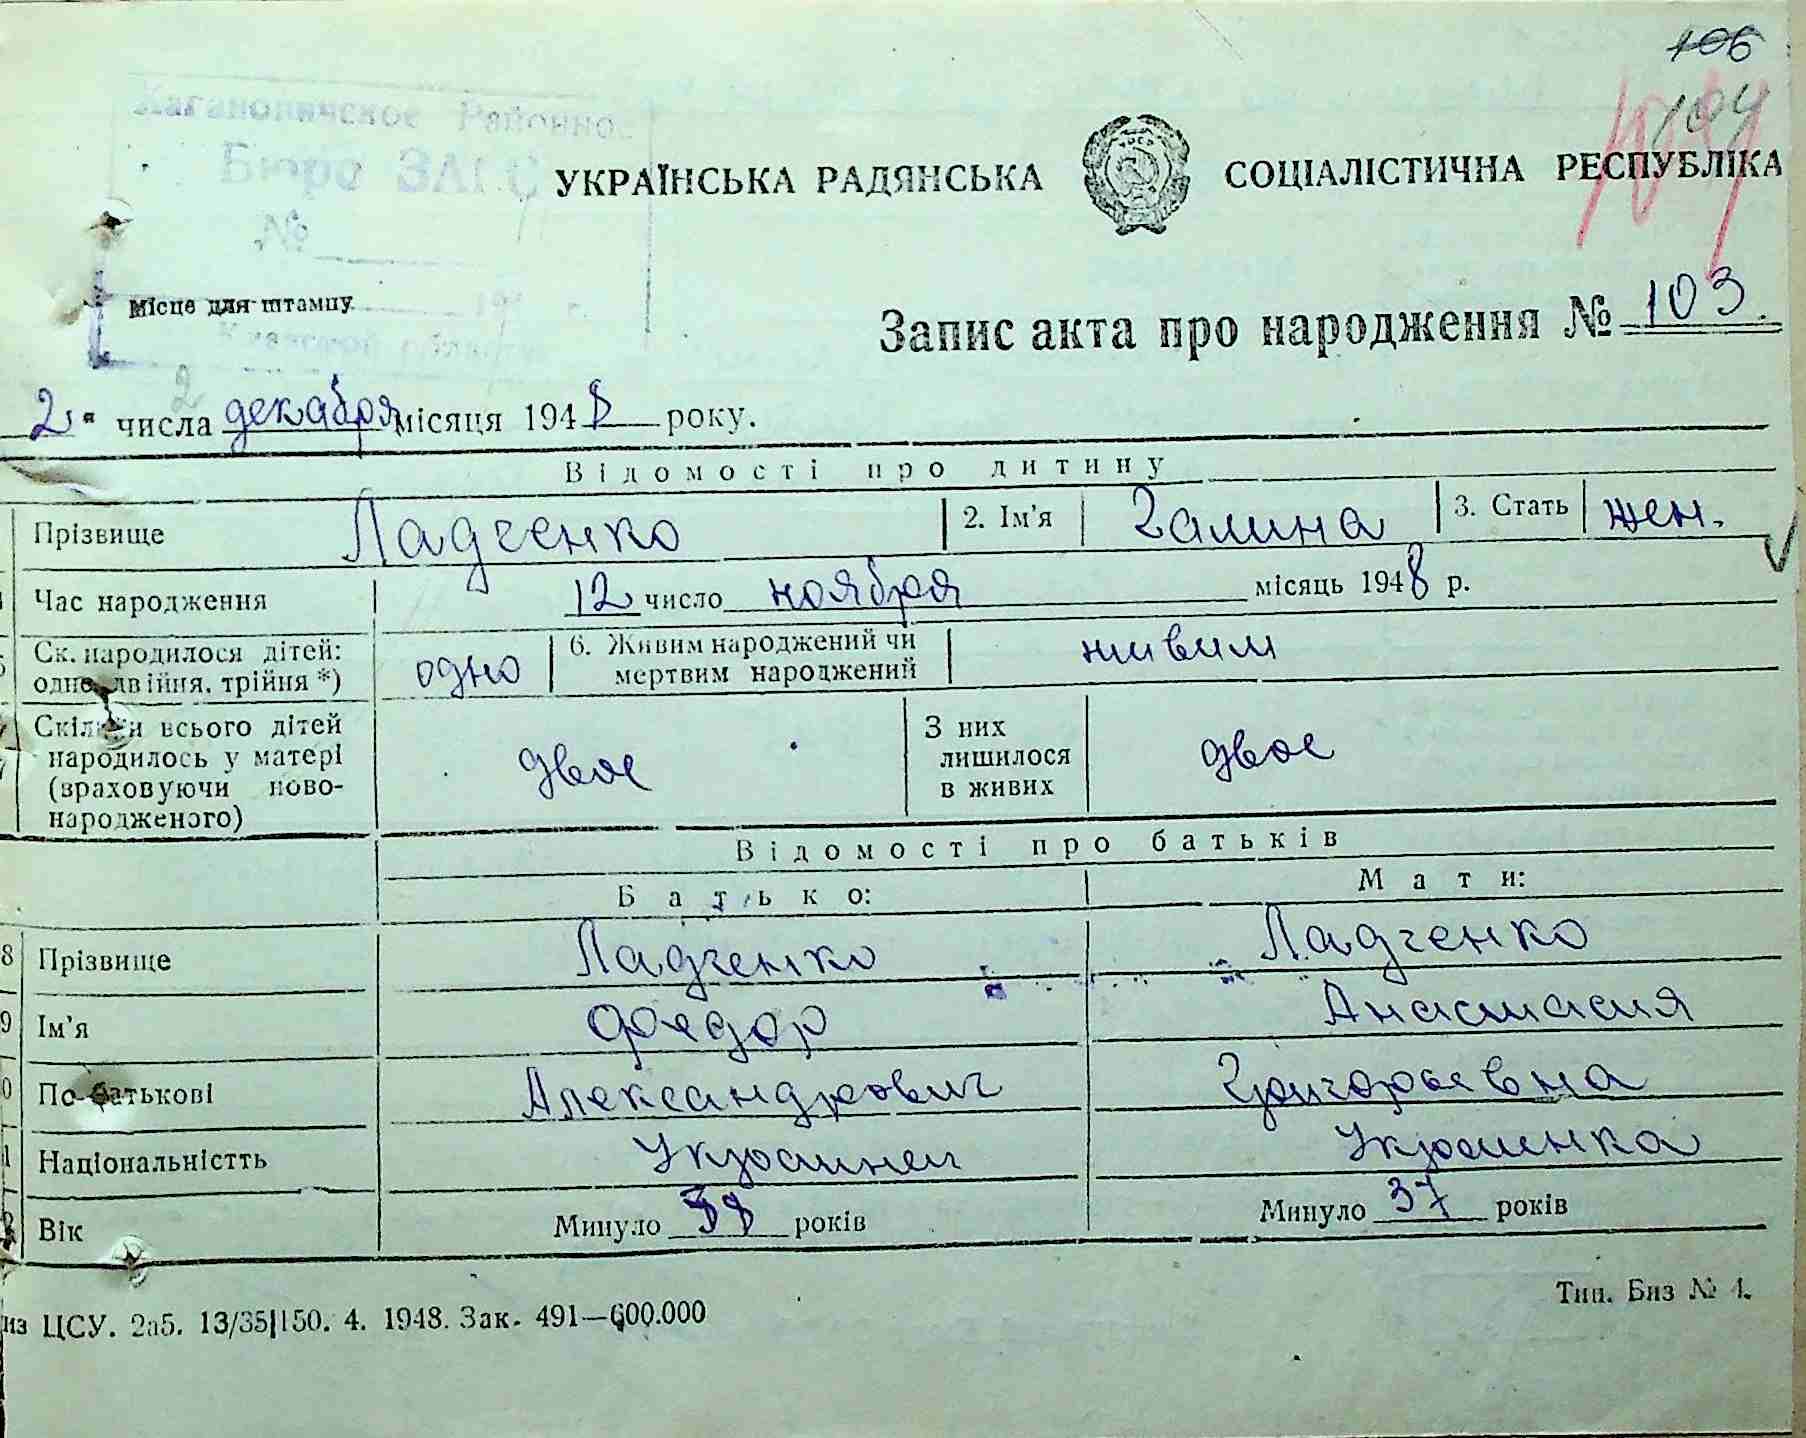 106
104
Кагановичское Районное
Бюро ЗАГС
УКРАЇНСЬКА РАДЯНСЬКА СОЦІАЛІСТИЧНА РЕСПУБЛІКА
№
Місце для штампу
Киевской области
Запис акта про народження № 103.
2" числа декабря місяця 1948 року.
Відомості про дитину
Прізвище Ладченко 2. Ім'я Галина 3. Стать жен.
Час народження 12 число ноября місяць 1948 р.
Ск. народилося дітей: одно, двійня, трійня *) одно 6. Живим народжений чи мертвим народжений живим
Скільки всього дітей народилось у матері (враховуючи ново-народженого) двое З них лишилося в живих двое
Відомості про батьків
Батько: Мати:
8 Прізвище Ладченко Ладченко
9 Ім'я Фоедор Анастасия
0 По батькові Александрович Григорьевна
1 Національністть Украинец Украинка
Вік Минуло 38 років Минуло 37 років
из ЦСУ. 2а5. 13/35|150. 4. 1948. Зак. 491—600.000 Тип. Биз № 4.